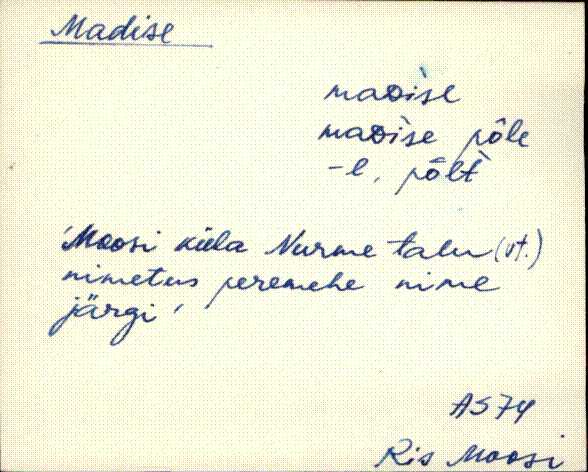 Madise
maDise
maDìse põle
-l, põlt
'Moosi küla Nurme talu (vt.)
nimetus peremehe nime
järgi'
AS 74
Ris Moosi